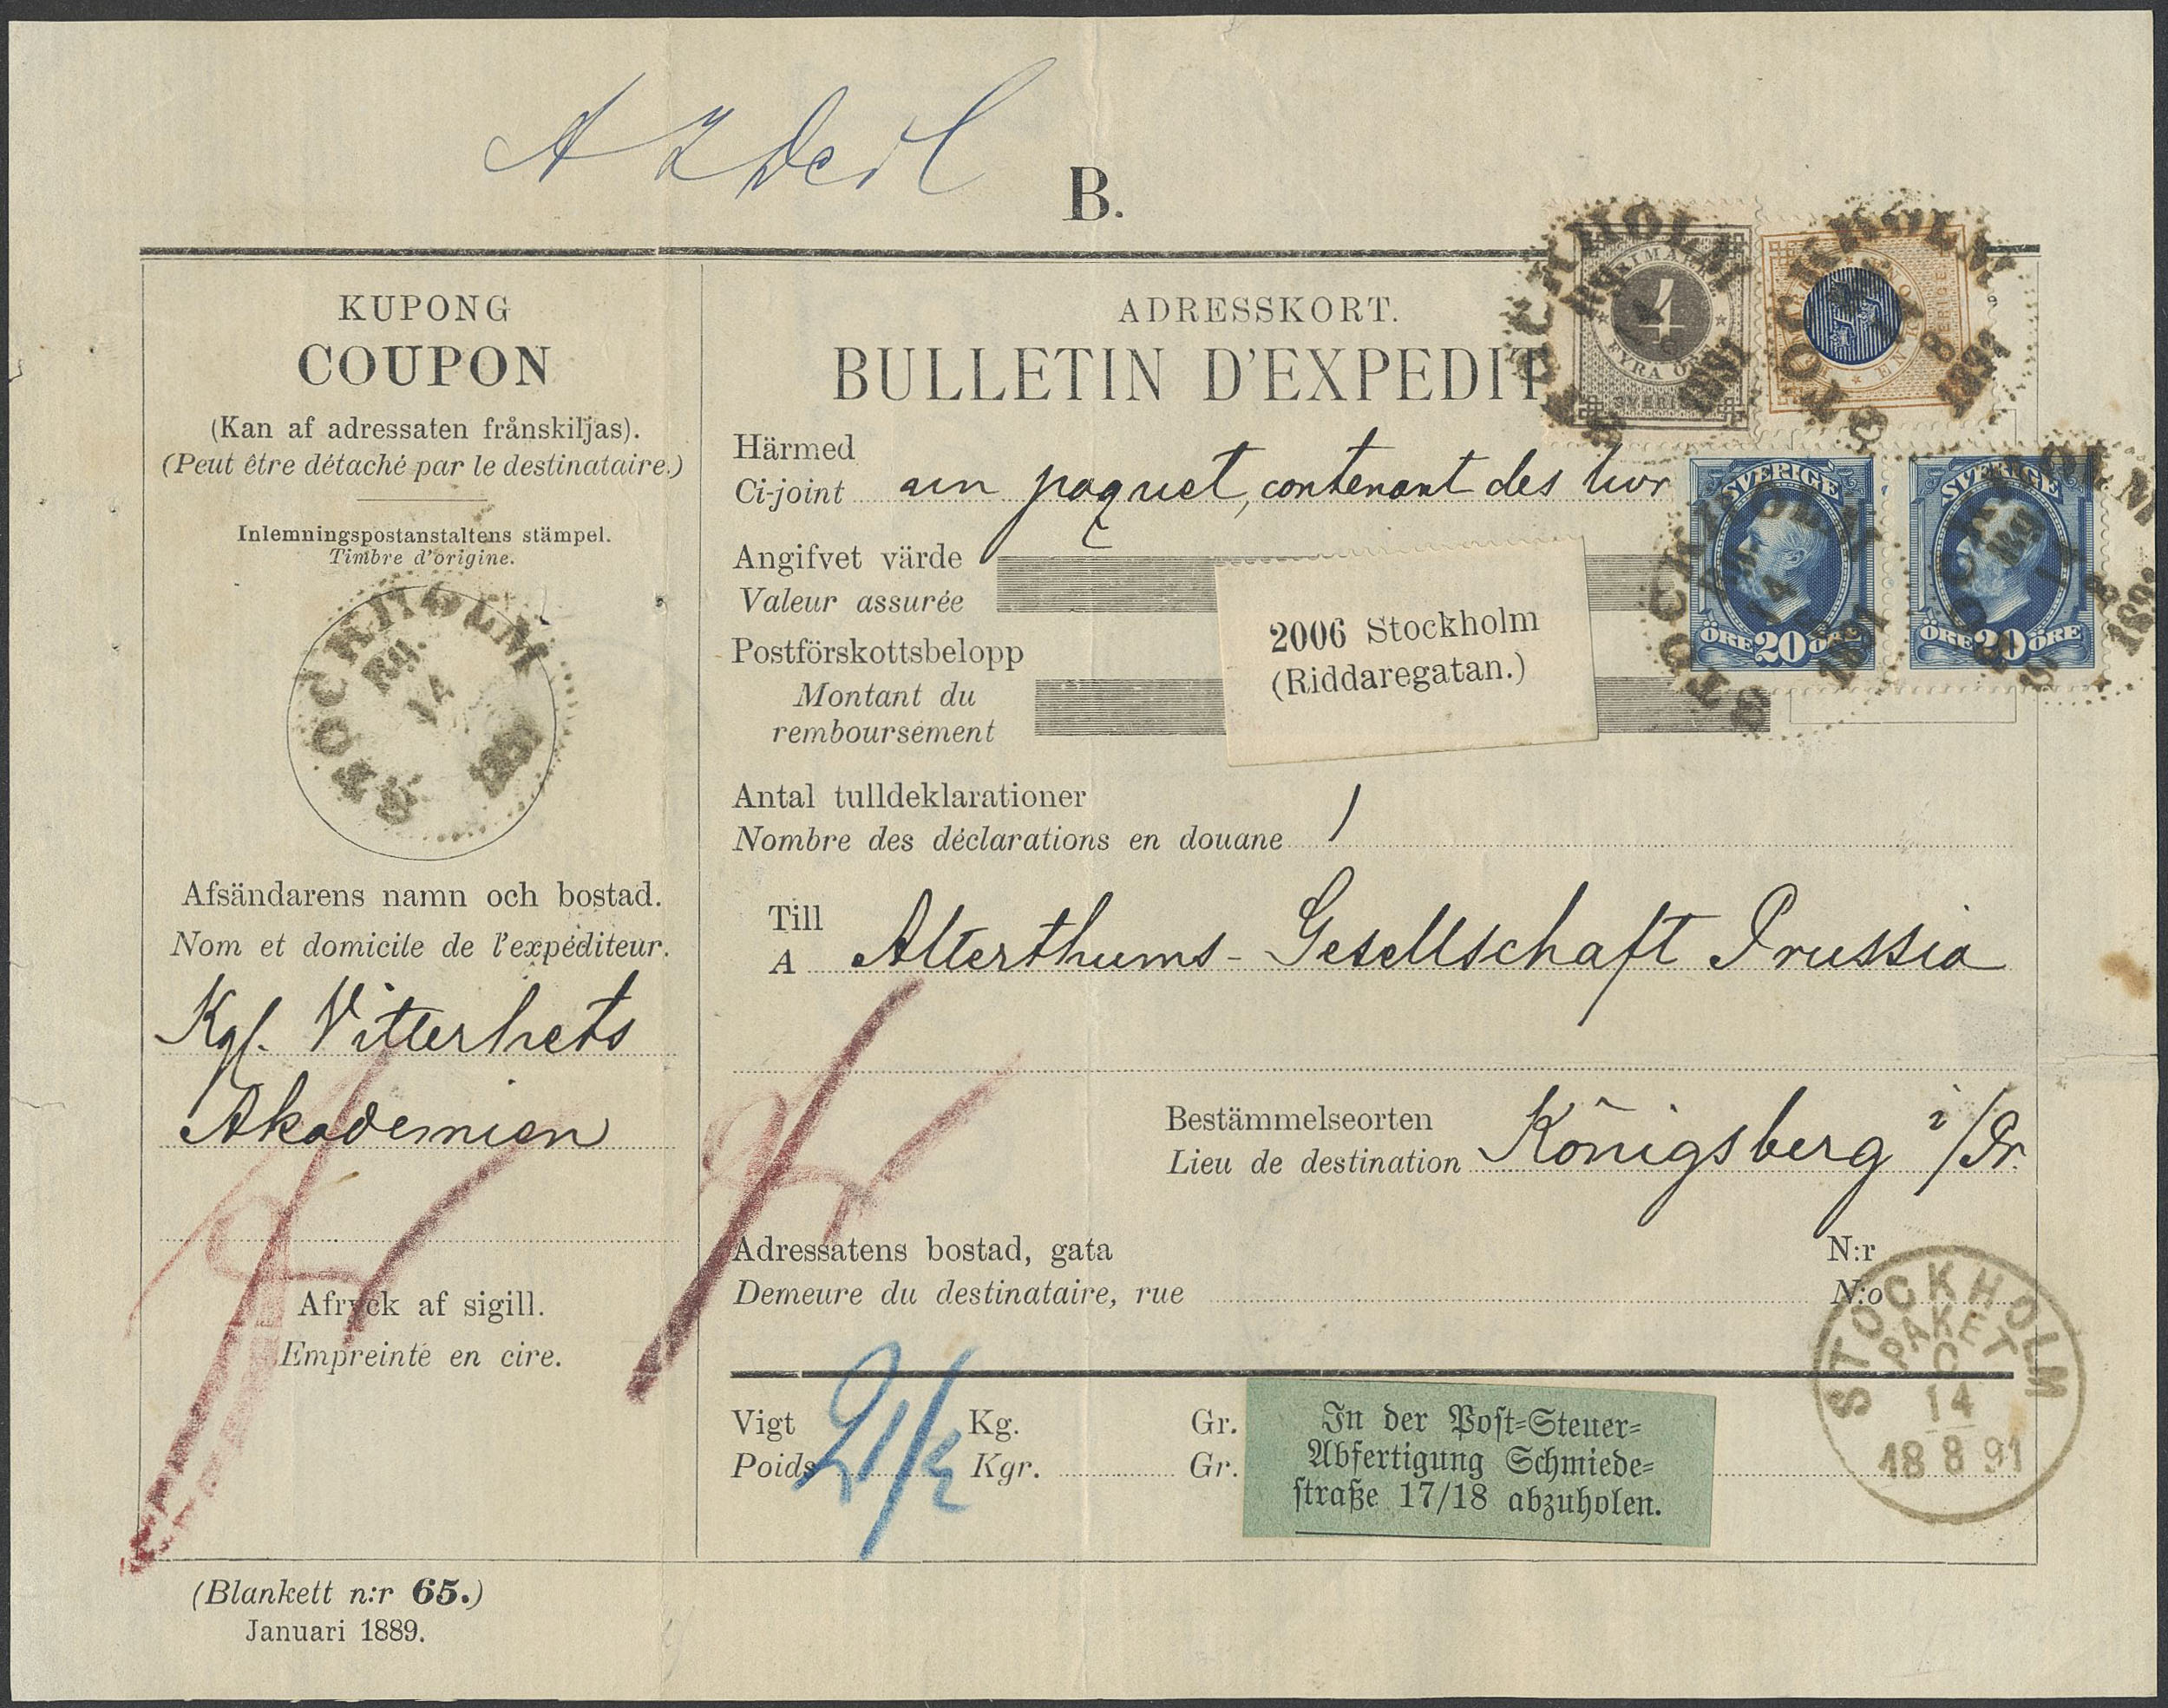 B.
KUPONG
COUPON
(Kan af adressaten frånskiljas).
(Peut être détaché par le destinataire.)
Inlemningspostanstaltens stämpel.
Timbre d'origine.
STOCKHOLM
14
1891
Afsändarens namn och bostad.
Nom et domicile de l'expéditeur.
Kgl. Vitterhets
Akademien
Afryck af sigill.
Empreinte en cire.
(Blankett n:r 65.)
Januari 1889.
ADRESSKORT.
BULLETIN D'EXPEDIT
Härmed
Ci-joint un paquet, contenant des livr
Angifvet värde
Valeur assurée
Postförskottsbelopp
Montant du
remboursement
2006 Stockholm
(Riddaregatan.)
Antal tulldeklarationer
Nombre des déclarations en douane 1
Till
A Alterthums-Gesellschaft Prussia
Bestämmelseorten
Lieu de destination Königsberg i/Pr.
Adressatens bostad, gata N:r
Demeure du destinataire, rue N:o
Vigt Kg. Gr.
Poids 2 1/2 Kgr. Gr.
In der Post-Steuer-
Abfertigung Schmiede-
straße 17/18 abzuholen.
STOCKHOLM
PAKET
C
14
18 8 91
4
FYRA ÖRE
SVERIGE
STOCKHOLM
8
1891
SVERIGE
ÖRE 20 ÖRE
STOCKHOLM
14
1891
SVERIGE
ÖRE 20 ÖRE